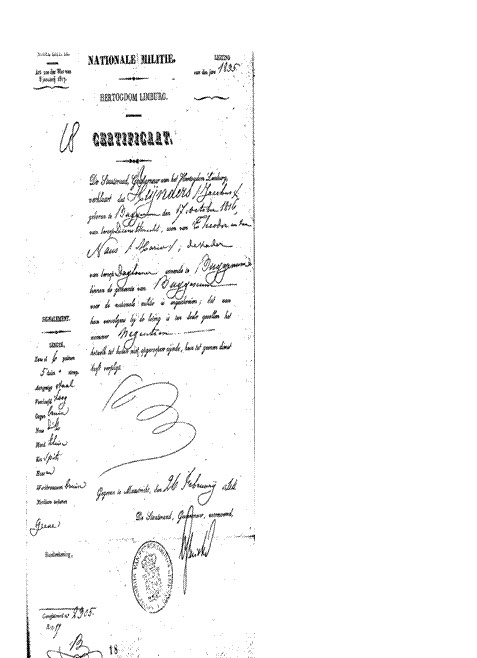 NATIONALE MILITIE.
LIGTING
van den jare 1835
Art. van der Wet van
8 januarij 1817.
HERTOGDOM LIMBURG.
18
CERTIFICAAT.
De Staatsraad, Gouverneur van het Hertogdom Limburg,
verklaart dat Heijnders / Jacobus /
geboren te Buggenum den 17 october 1816,
van beroep Dienstknecht, zoon van Theodor en van
Naus / Maria /; de vader
van beroep Daglooner wonende te Buggenum
binnen de gemeente van Buggenum
voor de nationale militie is ingeschreven; dat aan
hem vervolgens bij de loting is ten deele gevallen het
nummer Negentien
hetwelk tot heden niet opgeroepen zijnde, hem tot geenen dienst
heeft verpligt.
SIGNALEMENT.
LENGTE,
5 duim streep.
Aangezigt ovaal
Voorhoofd laag
Oogen bruin
Neus dik
Mond klein
Kin spits
Haar
Wenkbraauwen bruin
Merkbare teekenen
Geene
Gegeven te Maastricht, den 26 Februarij
De Staatsraad, Gouverneur, voornoemd,
Handteekening,
2305.
18